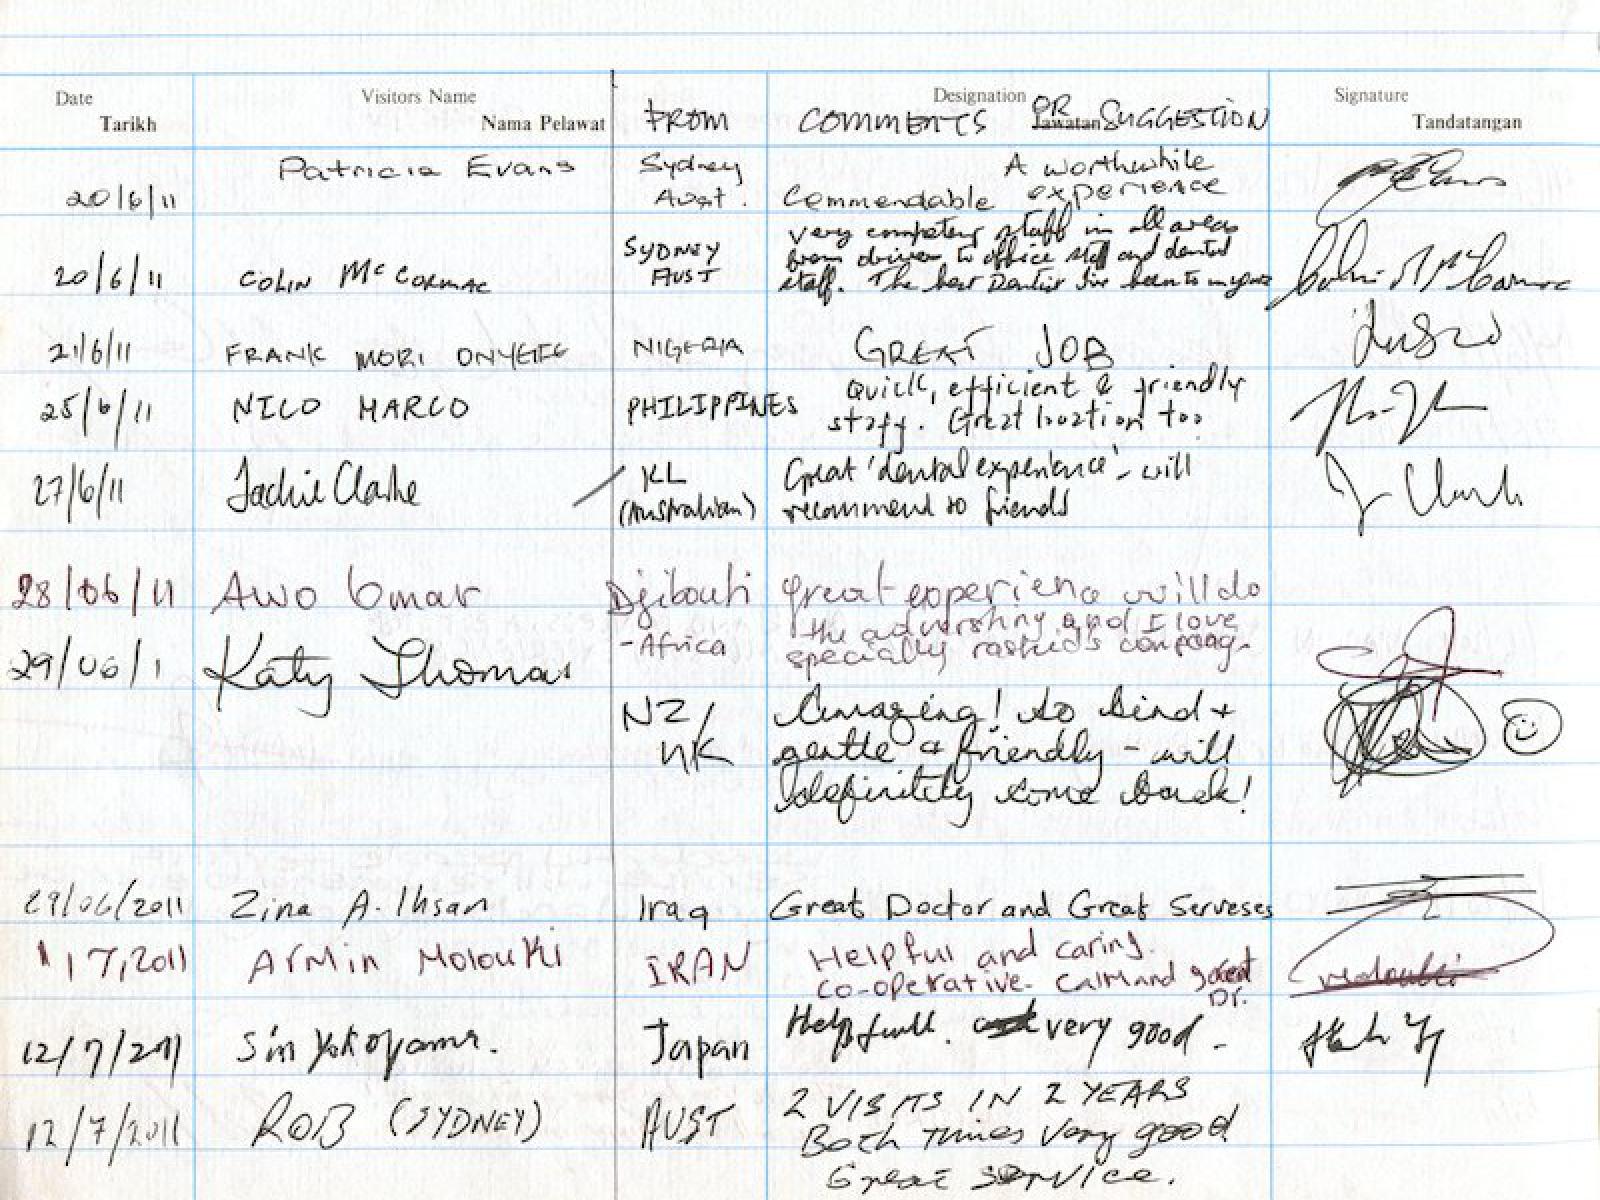 Date Visitors Name Designation OR Signature
Tarikh Nama Pelawat FROM COMMENTS Jawatan SUGGESTION Tandatangan
20/6/11 Patricia Evans Sydney Aust. Commendable A worthwhile experience
20/6/11 COLIN McCORMAC SYDNEY AUST very competent staff in all areas
from driver to office staff and dental
staff. The best Dentist I've been to in years
21/6/11 FRANK MORI NIGERIA GREAT JOB
25/6/11 NICO MARCO PHILIPPINES Quick, efficient & friendly
staff. Great location too
27/6/11 Jackie Clarke KL (Australian) Great 'dental experience' - will
recommend to friends
28/06/11 Awo Omar Djibouti - Africa great experienc will do
the advirsting and I love
specially rashid's
29/06/1 Katy Thomas NZ/UK Amazing! So kind +
gentle & friendly - will
definitely come back!
29/06/2011 Zina A. Ihsan Iraq Great Doctor and Great Serveses
1/7/2011 Armin Molouki IRAN Helpfull and caring.
co-operative. calm and great
Dr.
12/7/2011 Sin Yokoyama. Japan Helpfull. and very good.
12/7/2011 ROB (SYDNEY) AUST 2 VISITS IN 2 YEARS
Both times Very good
Great service.